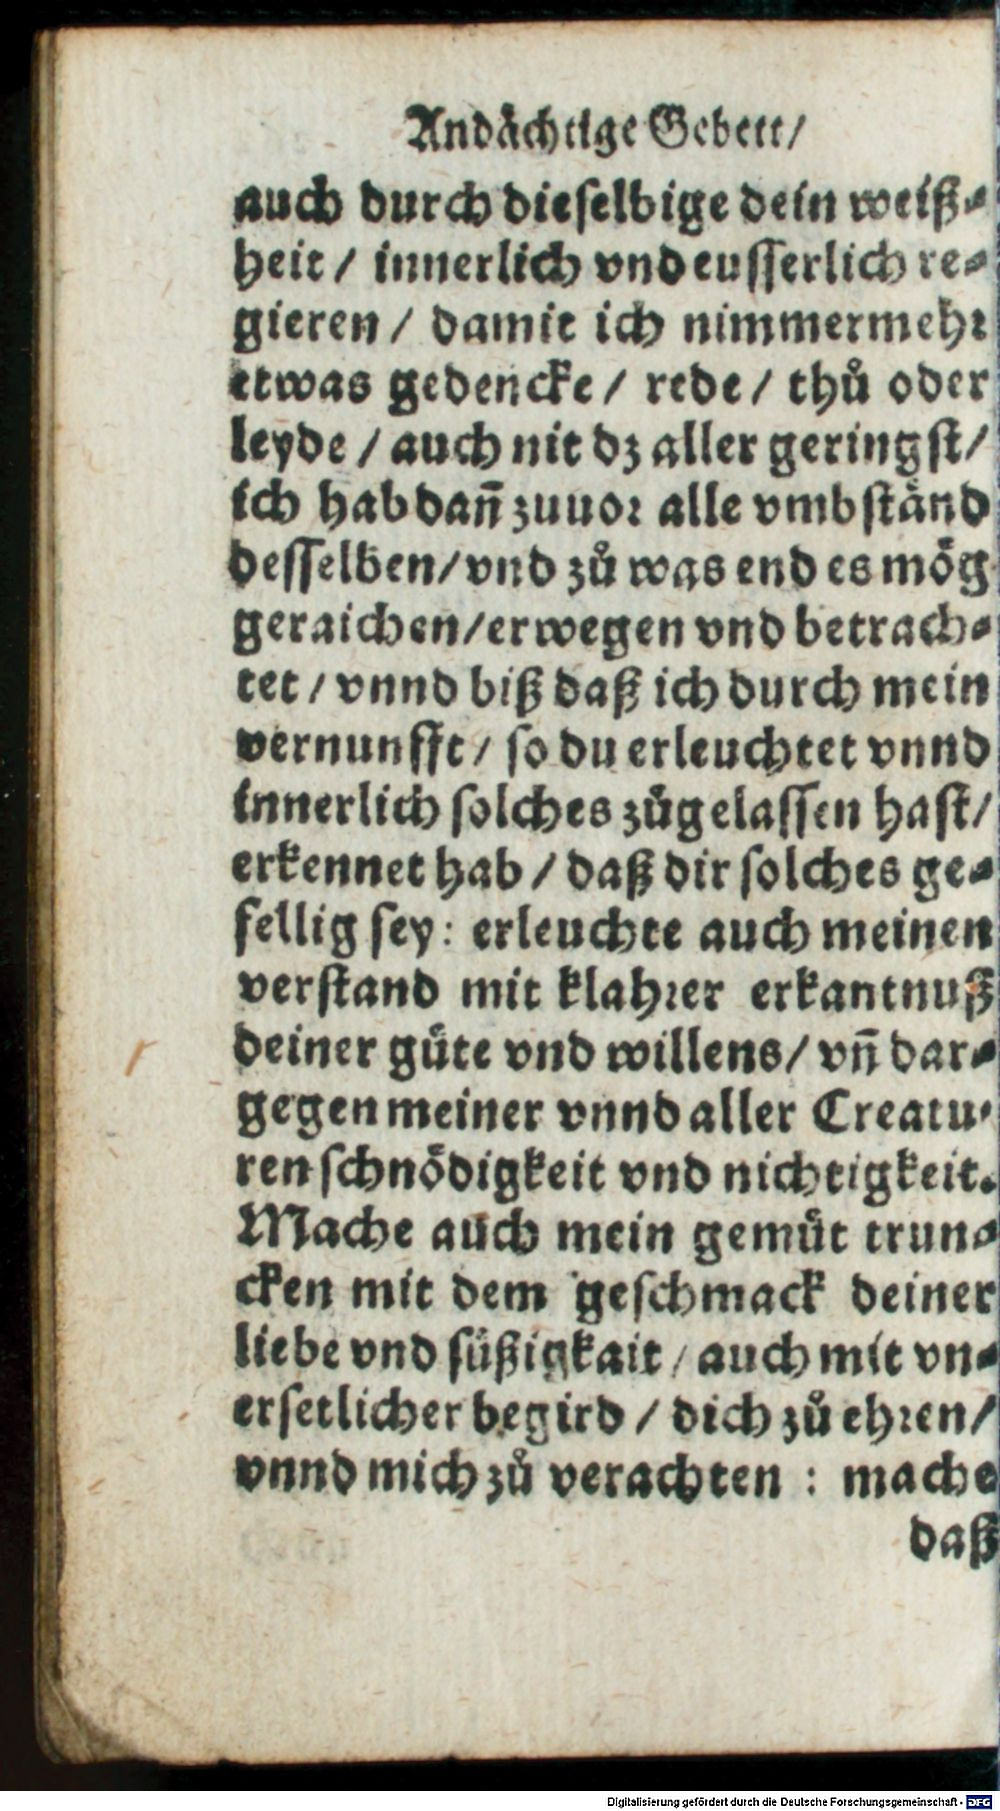 Andächtige Gebett/
auch durch dieselbige dein weiß-
heit / innerlich vnd eusserlich re-
gieren / damit ich nimmermehr
etwas gedencke / rede / thů oder
leyde / auch nit dz aller geringst/
ich hab dañ zuuor alle vmbständ
desselben/vnd zů was end es mög
geraichen/erwegen vnd betrach-
tet / vnnd biß daß ich durch mein
vernunfft / so du erleuchtet vnnd
innerlich solches zůgelassen hast/
erkennet hab / daß dir solches ge-
fellig sey: erleuchte auch meinen
verstand mit klahrer erkantnuß
deiner güte vnd willens/ vñ dar-
gegen meiner vnnd aller Creatu-
ren schnödigkeit vnd nichtigkeit.
Mache auch mein gemüt trun-
cken mit dem geschmack deiner
liebe vnd süßigkait / auch mit vn-
ersetlicher begird / dich zů ehren/
vnnd mich zů verachten : mache
daß
Digitalisierung gefördert durch die Deutsche Forschungsgemeinschaft - DFG